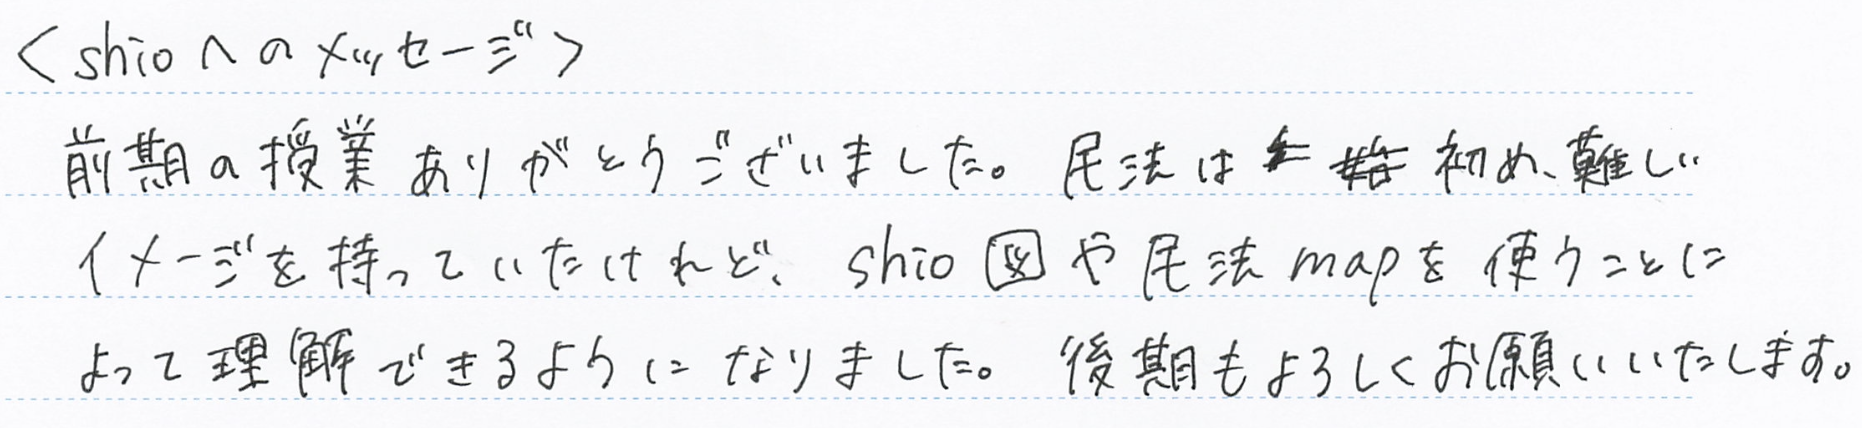 <shioへのメッセージ>
前期の授業ありがとうございました。民法は初め、難しい
イメージを持っていたけれど、shio図や民法mapを使うことに
よって理解できるようになりました。後期もよろしくお願いいたします。